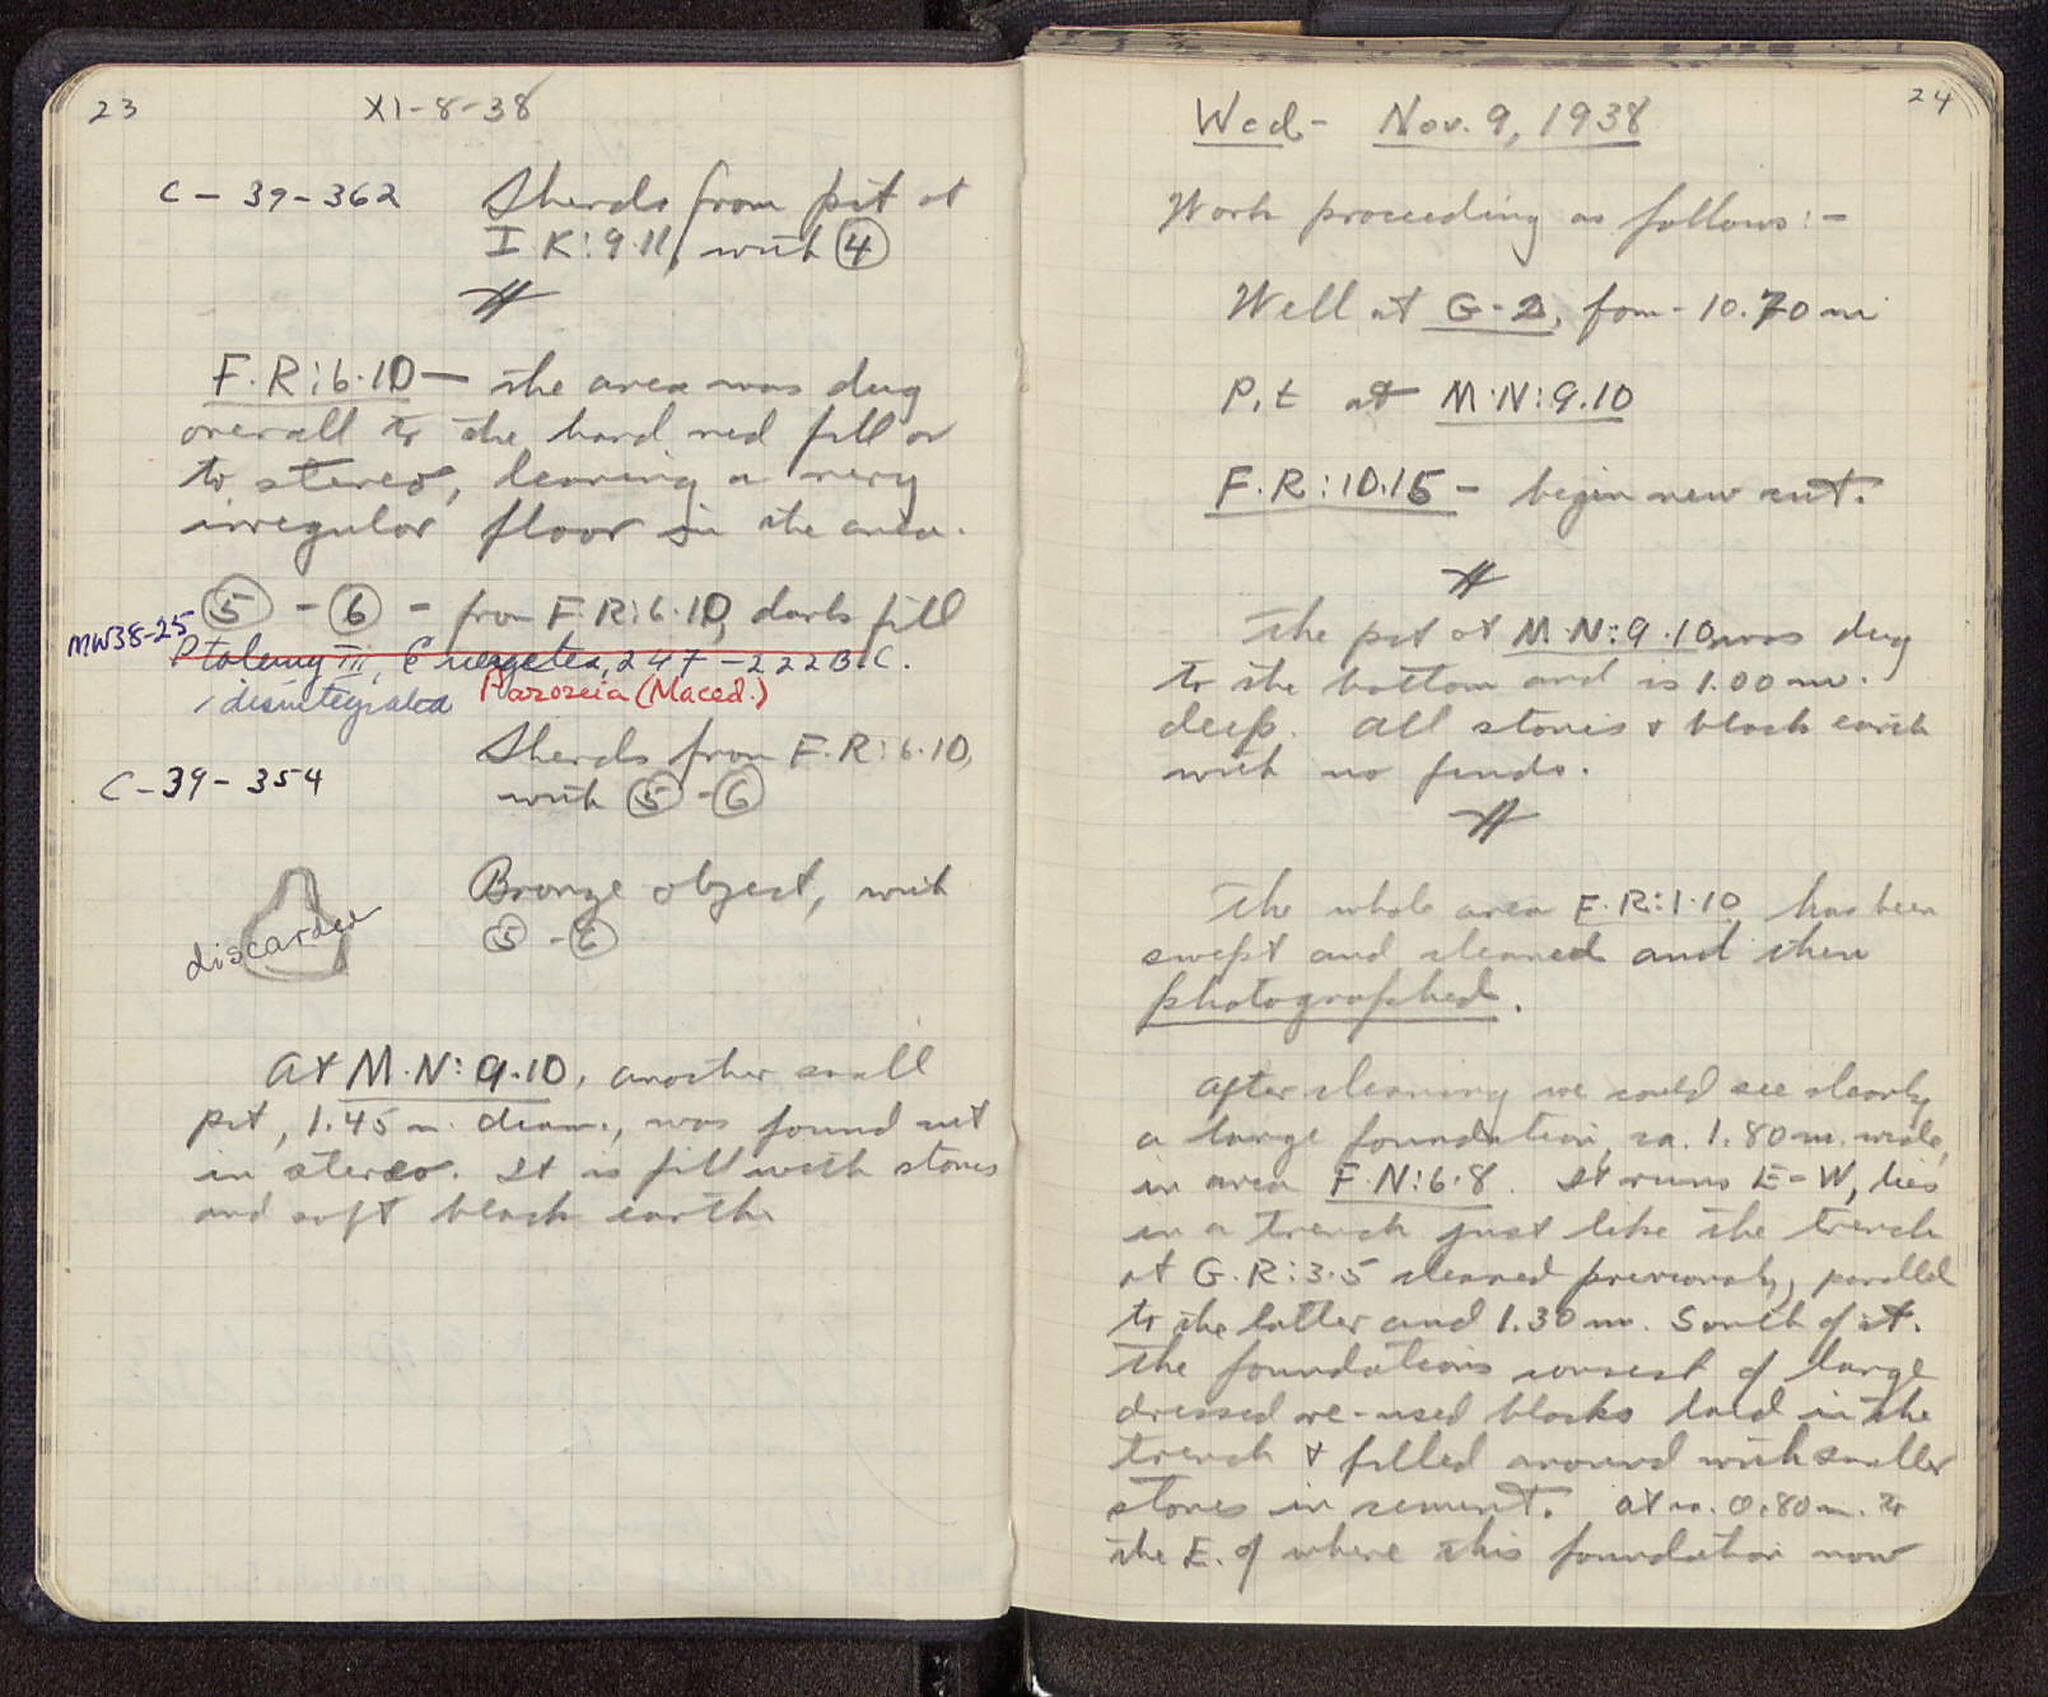 23
XI-8-38
C-39-362
Sherds from pit at
I K:9.11, with 4
F.R:6.10 — the area was dug
overall to the hard red fill or
to stereo, leaving a very
irregular floor in the area.
5 - 6 - from F.R:6.10, dark fill
MW38-25
Ptolemy III, Euergetes, 247-222 B.C.
1 disintegrated
(Maced.)
Sherds from F.R:6.10,
with 5 - 6
C-39-354
Bronze object, with
5 - 6
discarded
At M.N:9.10, another small
pit, 1.45 m. diam., was found cut
in stereo. It is fill with stones
and soft black earth
24
Wed- Nov. 9, 1938
Work proceeding as follows:-
Well at G-2, from -10.70 m
Pit at M.N:9.10
F.R:10.15 - begin new cut.
The pit at M.N:9.10 was dug
to the bottom and is 1.00 m.
deep. All stones & black earth
with no finds.
The whole area F.R:1.10 has been
swept and cleaned and then
photographed.
After cleaning we could see clearly
a large foundation, ca. 1.80 m. wide,
in area F.N:6.8. It runs E-W, lies
in a trench just like the trench
at G.R:3.5 cleaned previously, parallel
to the latter and 1.30 m. South of it.
The foundations consist of large
dressed re-used blocks laid in the
trench & filled around with smaller
stones in cement. At ca. 0.80 m. to
the E. of where this foundation now